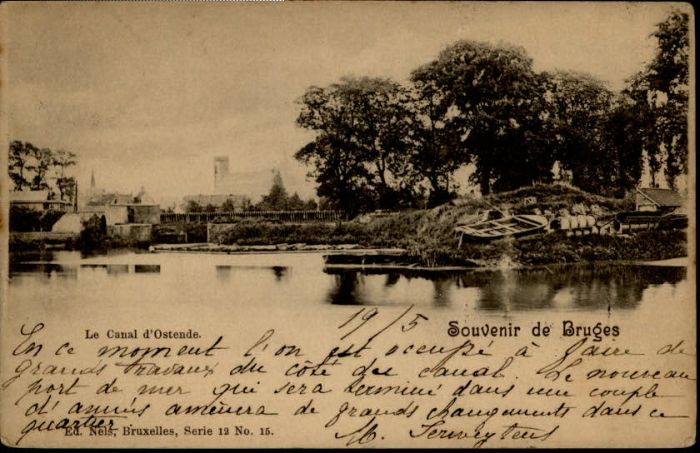 Le Canal d'Ostende.
19/5
Souvenir de Bruges
En ce moment l'on est occupé à faire de
grands travaux du côté du canal. Le nouveau
port de mer qui sera terminé dans une couple
d'années amènera de grands changements dans ce
quartier.
Ed. Nels, Bruxelles, Serie 12 No. 15.